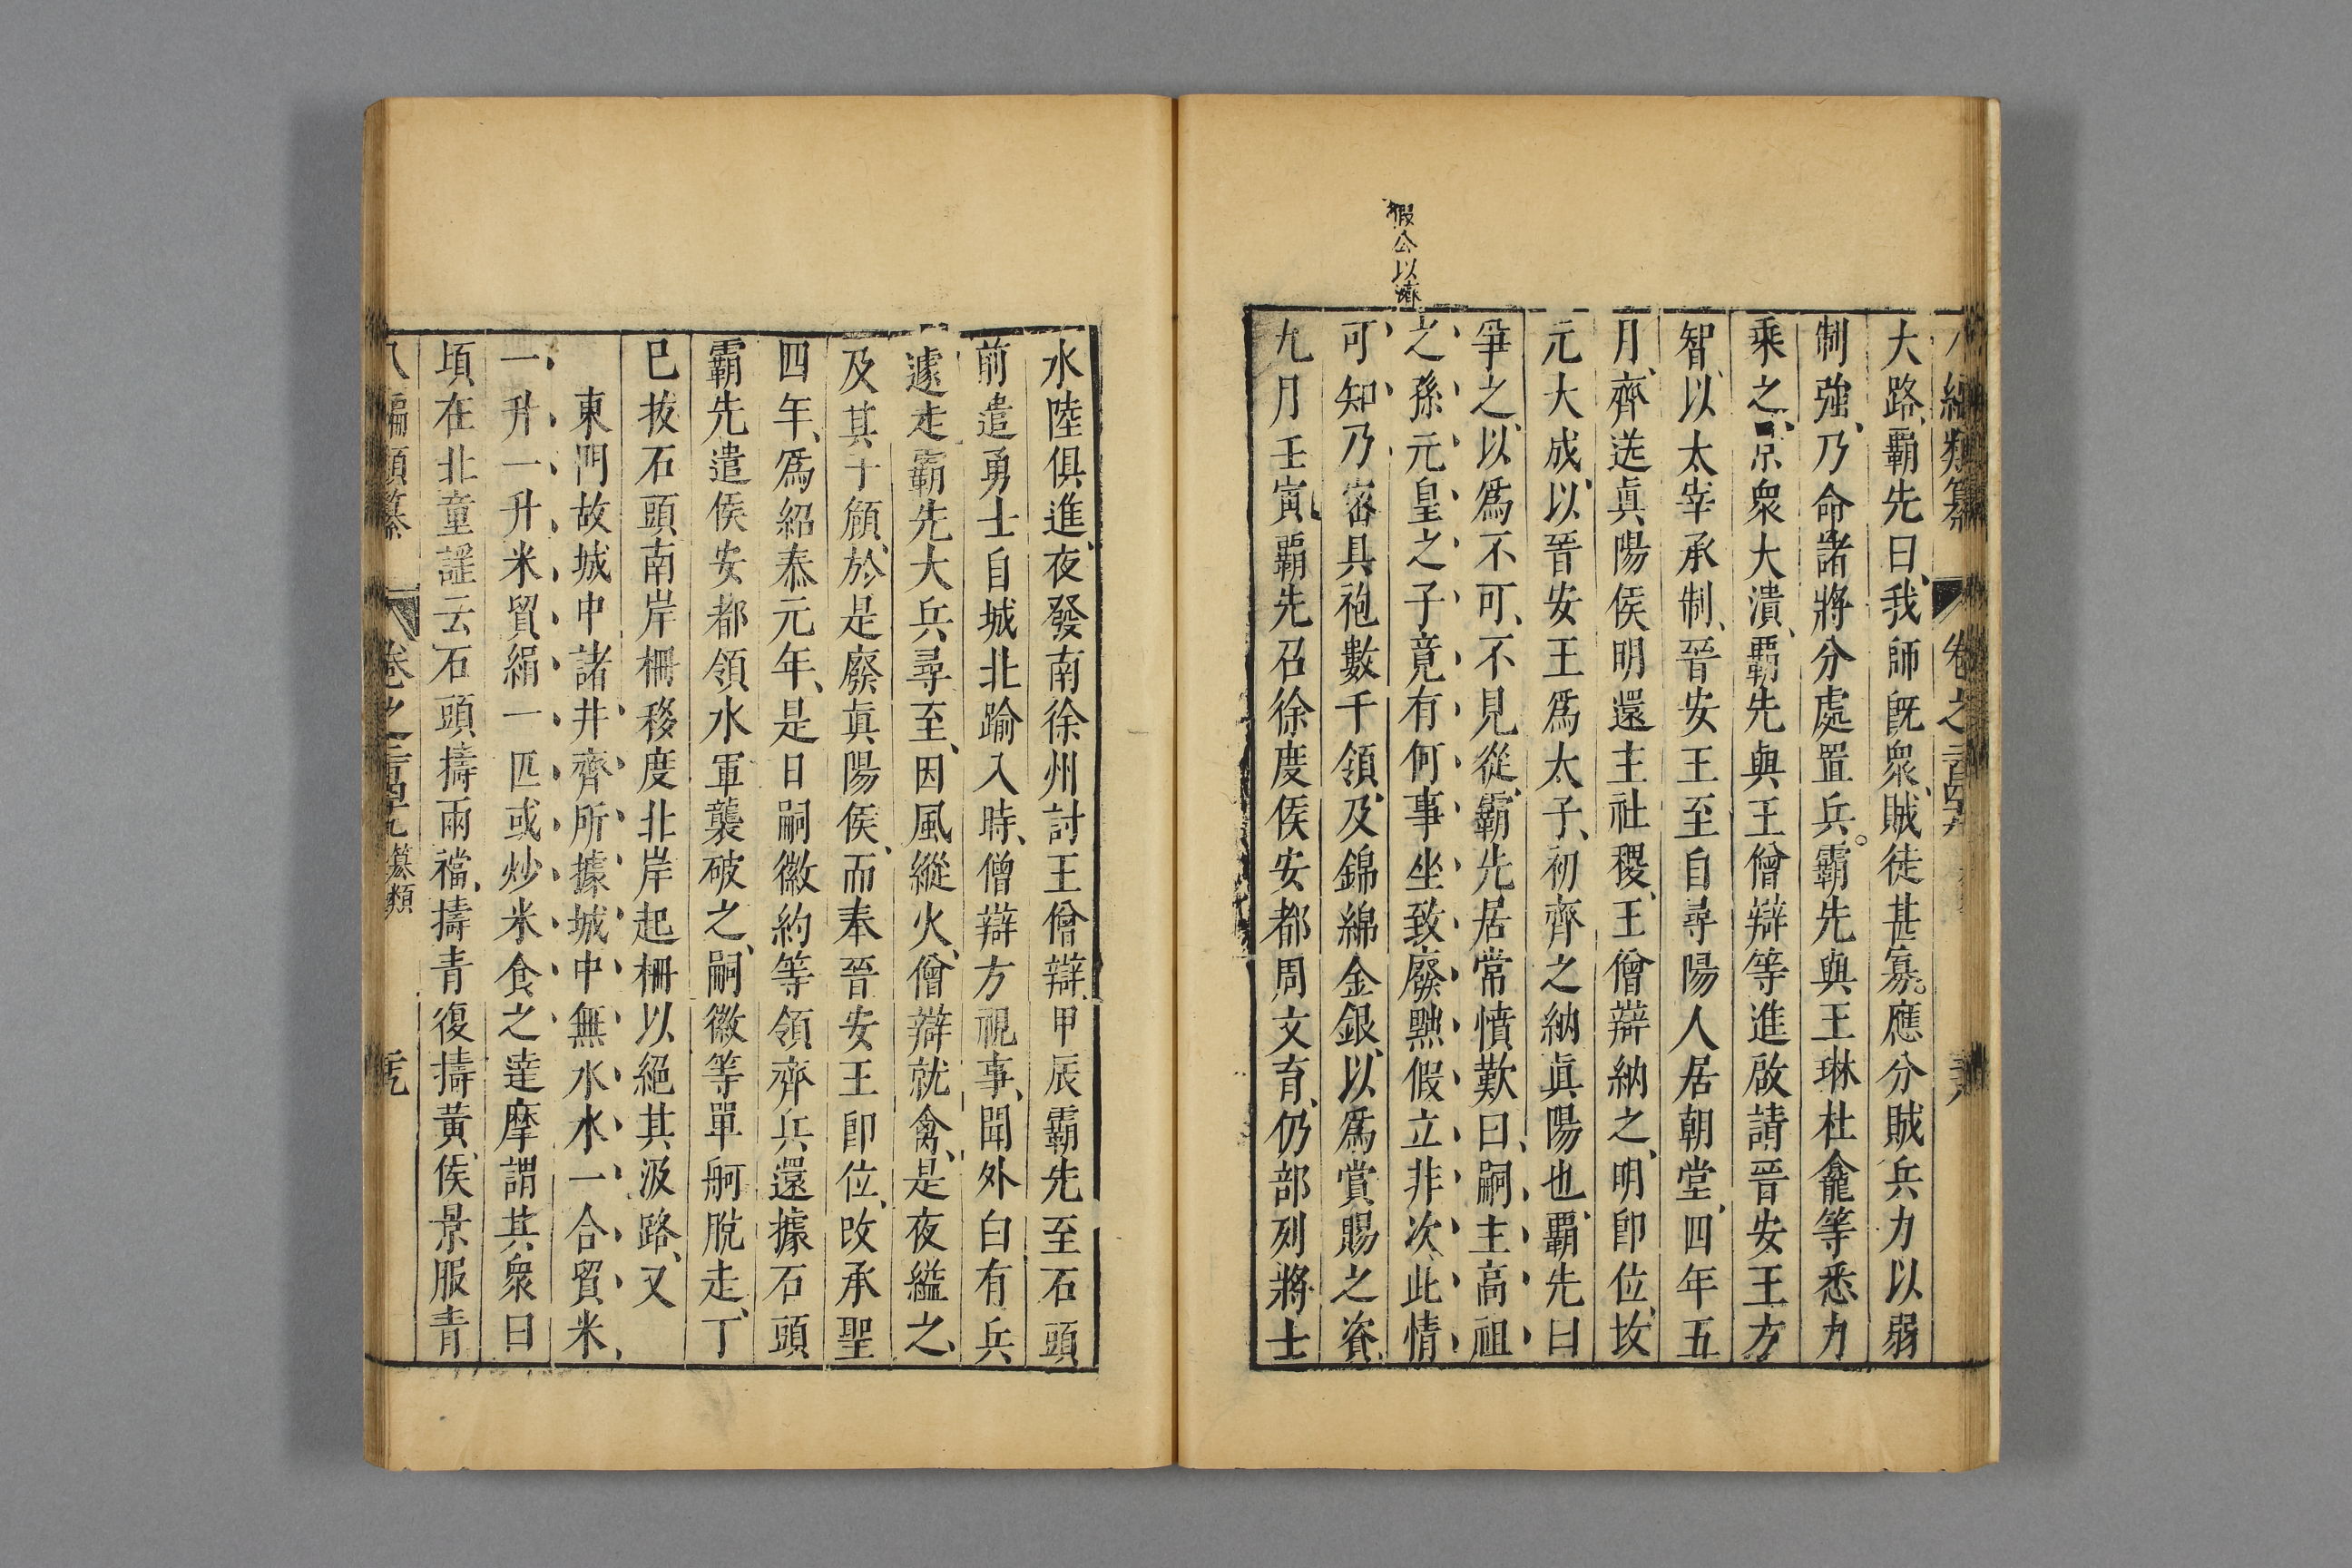 編類纂 卷之
大路、霸先曰、我師旣衆、賊徒甚寡。應分賊兵力以弱
制強、乃命諸將分處置兵。霸先與王琳杜龕等悉力
乘之、京衆大潰、霸先與王僧辯等進啟請晉安王方
智、以太宰承制、晉安王至自尋陽人居朝堂、四年五
月、齊送眞陽侯明還主社稷、王僧辯納之、明卽位、坟
元大成、以晉安王爲太子、初齊之納眞陽也、霸先曰
爭之、以爲不可、不見從、霸先居常憤歎曰、嗣主高祖
之孫元皇之子竟有何事坐致廢黜假立非次、此情
可知、乃密具袍數千領、及錦綿金銀、以爲賞賜之資、
九月壬寅、霸先召徐度侯安都周文育、仍部列將士
假公以濟
水陸俱進、夜發南徐州討王僧辯、甲辰霸先至石頭
前遣勇士自城北踰入時、僧辯方視事、聞外白有兵
遽走、霸先大兵尋至、因風縱火、僧辯就禽、是夜縊之、
及其子頠、於是廢眞陽侯、而奉晉安王卽位、改承聖
四年、爲紹泰元年、是日嗣徽約等領齊兵還據石頭
霸先遣侯安都領水軍襲破之、嗣徽等單舸脫走、丁
巳拔石頭南岸柵移度北岸起柵以絕其汲路、又
東門故城中諸井齊所據城中無水水一合貿米、
一升一升米貿絹一匹或炒米食之達摩謂其衆曰
頃在北童謠云石頭擣兩襠、擣青復擣黃、侯景服青
編類纂 卷之 纂類